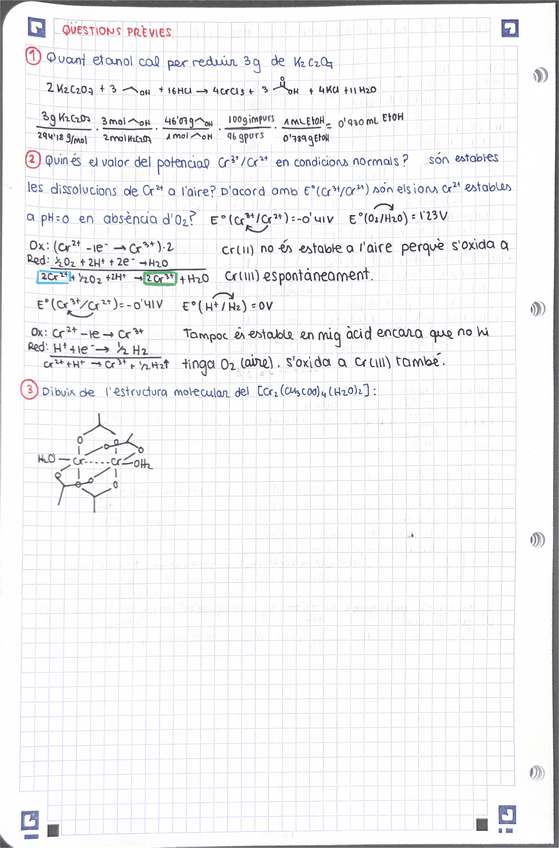 QÜESTIONS PRÈVIES
① Quant etanol cal per reduir 3g de K₂C₂O₇
2 K₂C₂O₇ + 3 ⁀OH + 16HCl → 4CrCl₃ + 3 OH + 4KCl + 11H₂O
3g K₂C₂O₇ / 294'18 g/mol · 3mol OH / 2mol K₂C₂O₇ · 46'07g OH / 1mol OH · 100g impurs / 96 g purs · 1 mL EtOH / 0'789g EtOH = 0'930 mL EtOH
② Quin és el valor del potencial Cr³⁺/Cr²⁺ en condicions normals? són estables
les dissolucions de Cr²⁺ a l'aire? D'acord amb E°(Cr³⁺/Cr²⁺) són els ions Cr²⁺ estables
a pH=0 en absència d'O₂? E°(Cr³⁺/Cr²⁺)=-0'41V E°(O₂/H₂O)=1'23V
Ox: (Cr²⁺ -1e⁻ → Cr³⁺)·2 Cr(II) no és estable a l'aire perquè s'oxida a
Red: ½O₂ + 2H⁺ + 2e⁻ → H₂O
2Cr²⁺ + ½O₂ + 2H⁺ → 2Cr³⁺ + H₂O Cr(III) espontàneament.
E°(Cr³⁺/Cr²⁺)=-0'41V E°(H⁺/H₂)=0V
Ox: Cr²⁺ -1e → Cr³⁺ Tampoc és estable en mig àcid encara que no hi
Red: H⁺+1e⁻ → ½ H₂
Cr²⁺+H⁺ → Cr³⁺ + ½H₂↑ tinga O₂ (aire). s'oxida a Cr(III) també.
③ Dibuix de l'estructura molecular del [Cr₂(CH₃COO)₄(H₂O)₂]:
O
O O O
H₂O Cr Cr OH₂
O O O
O